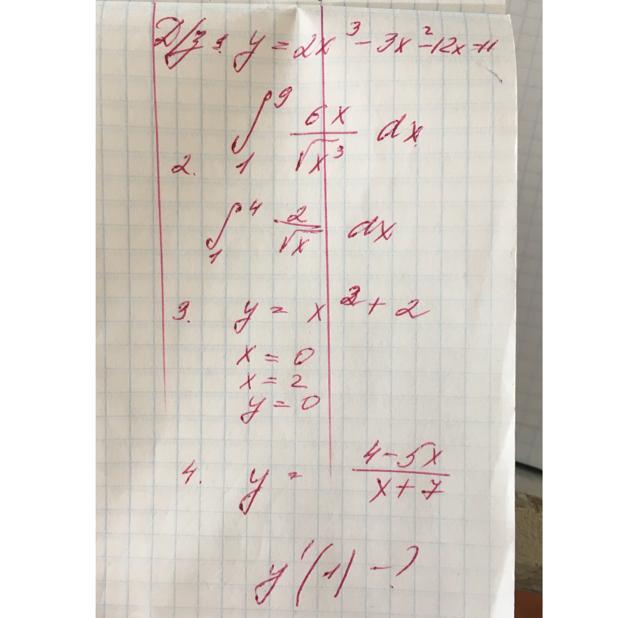 Д/з 1. y = 2x³ - 3x² - 12x - 11
2. ∫₁⁹ 6x/√x³ dx
∫₁⁴ 2/√x dx
3. y = x² + 2
x = 0
x = 2
y = 0
4. y = (4-5x)/(x+7)
y'(1) - ?